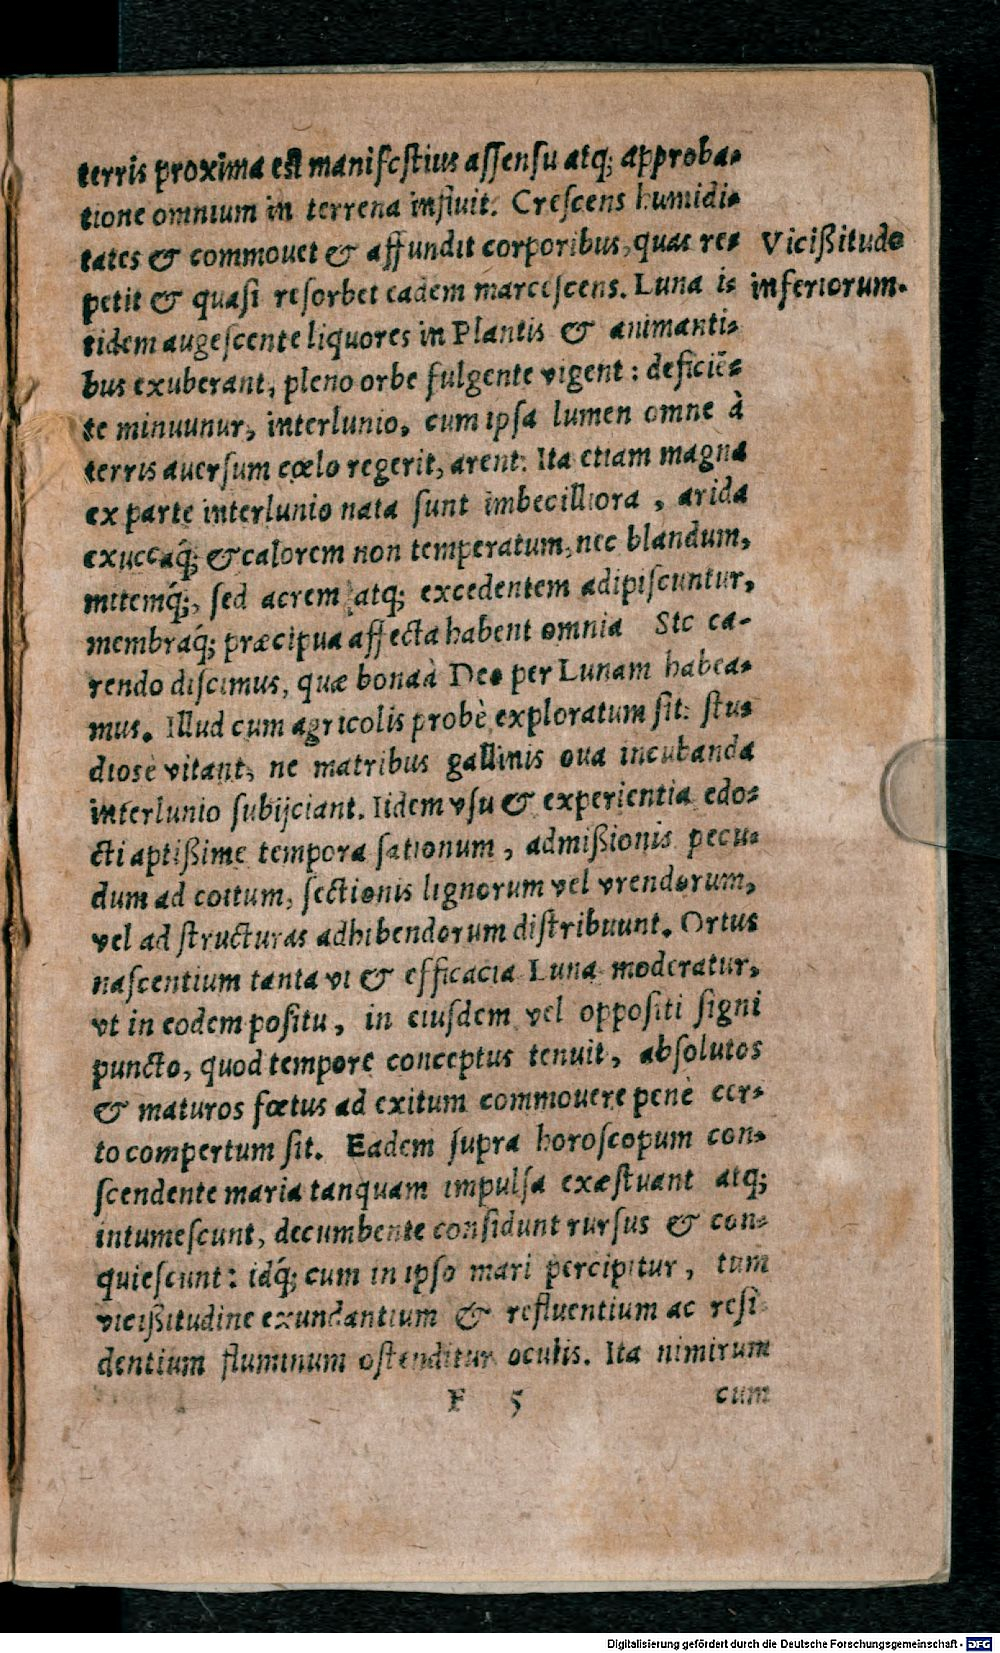 terris proxima est manifestius assensu atq; approba-
tione omnium in terrena influit. Crescens humidi-
tates & commouet & affundit corporibus, quas re-
Vicißitudo
petit & quasi resorbet eadem marcescens. Luna i-
inferiorum.
tidem augescente liquores in Plantis & animanti-
bus exuberant, pleno orbe fulgente vigent: deficiē-
te minuunur, interlunio, cum ipsa lumen omne à
terris auersum cœlo regerit, arent: Ita etiam magna
ex parte interlunio nata sunt imbecilliora, arida
exuccaq́; & calorem non temperatum, nec blandum,
mitemq́;, sed acrem atq; excedentem adipiscuntur,
membraq́; præcipua affecta habent omnia Sic ca-
rendo discimus, quæ bona à Deo per Lunam habea-
mus. Illud cum agricolis probè exploratum sit: stu-
diosè vitant, ne matribus gallinis oua incubanda
interlunio subijciant. Iidem vsu & experientia edo-
cti aptißime tempora sationum, admißionis pecu-
dum ad coitum, sectionis lignorum vel vrendorum,
vel ad structuras adhibendorum distribuunt. Ortus
nascentium tanta vi & efficacia Luna moderatur,
vt in eodem positu, in eiusdem vel oppositi signi
puncto, quod tempore conceptus tenuit, absolutos
& maturos fœtus ad exitum commouere penè cer-
to compertum sit. Eadem supra horoscopum con-
scendente maria tanquam impulsa exæstuant atq;
intumescunt, decumbente considunt rursus & con-
quiescunt: idq́; cum in ipso mari percipitur, tum
vicißitudine exundantium & refluentium ac resi-
dentium fluminum ostenditur oculis. Ita nimirum
F 5 cum
Digitalisierung gefördert durch die Deutsche Forschungsgemeinschaft - DFG